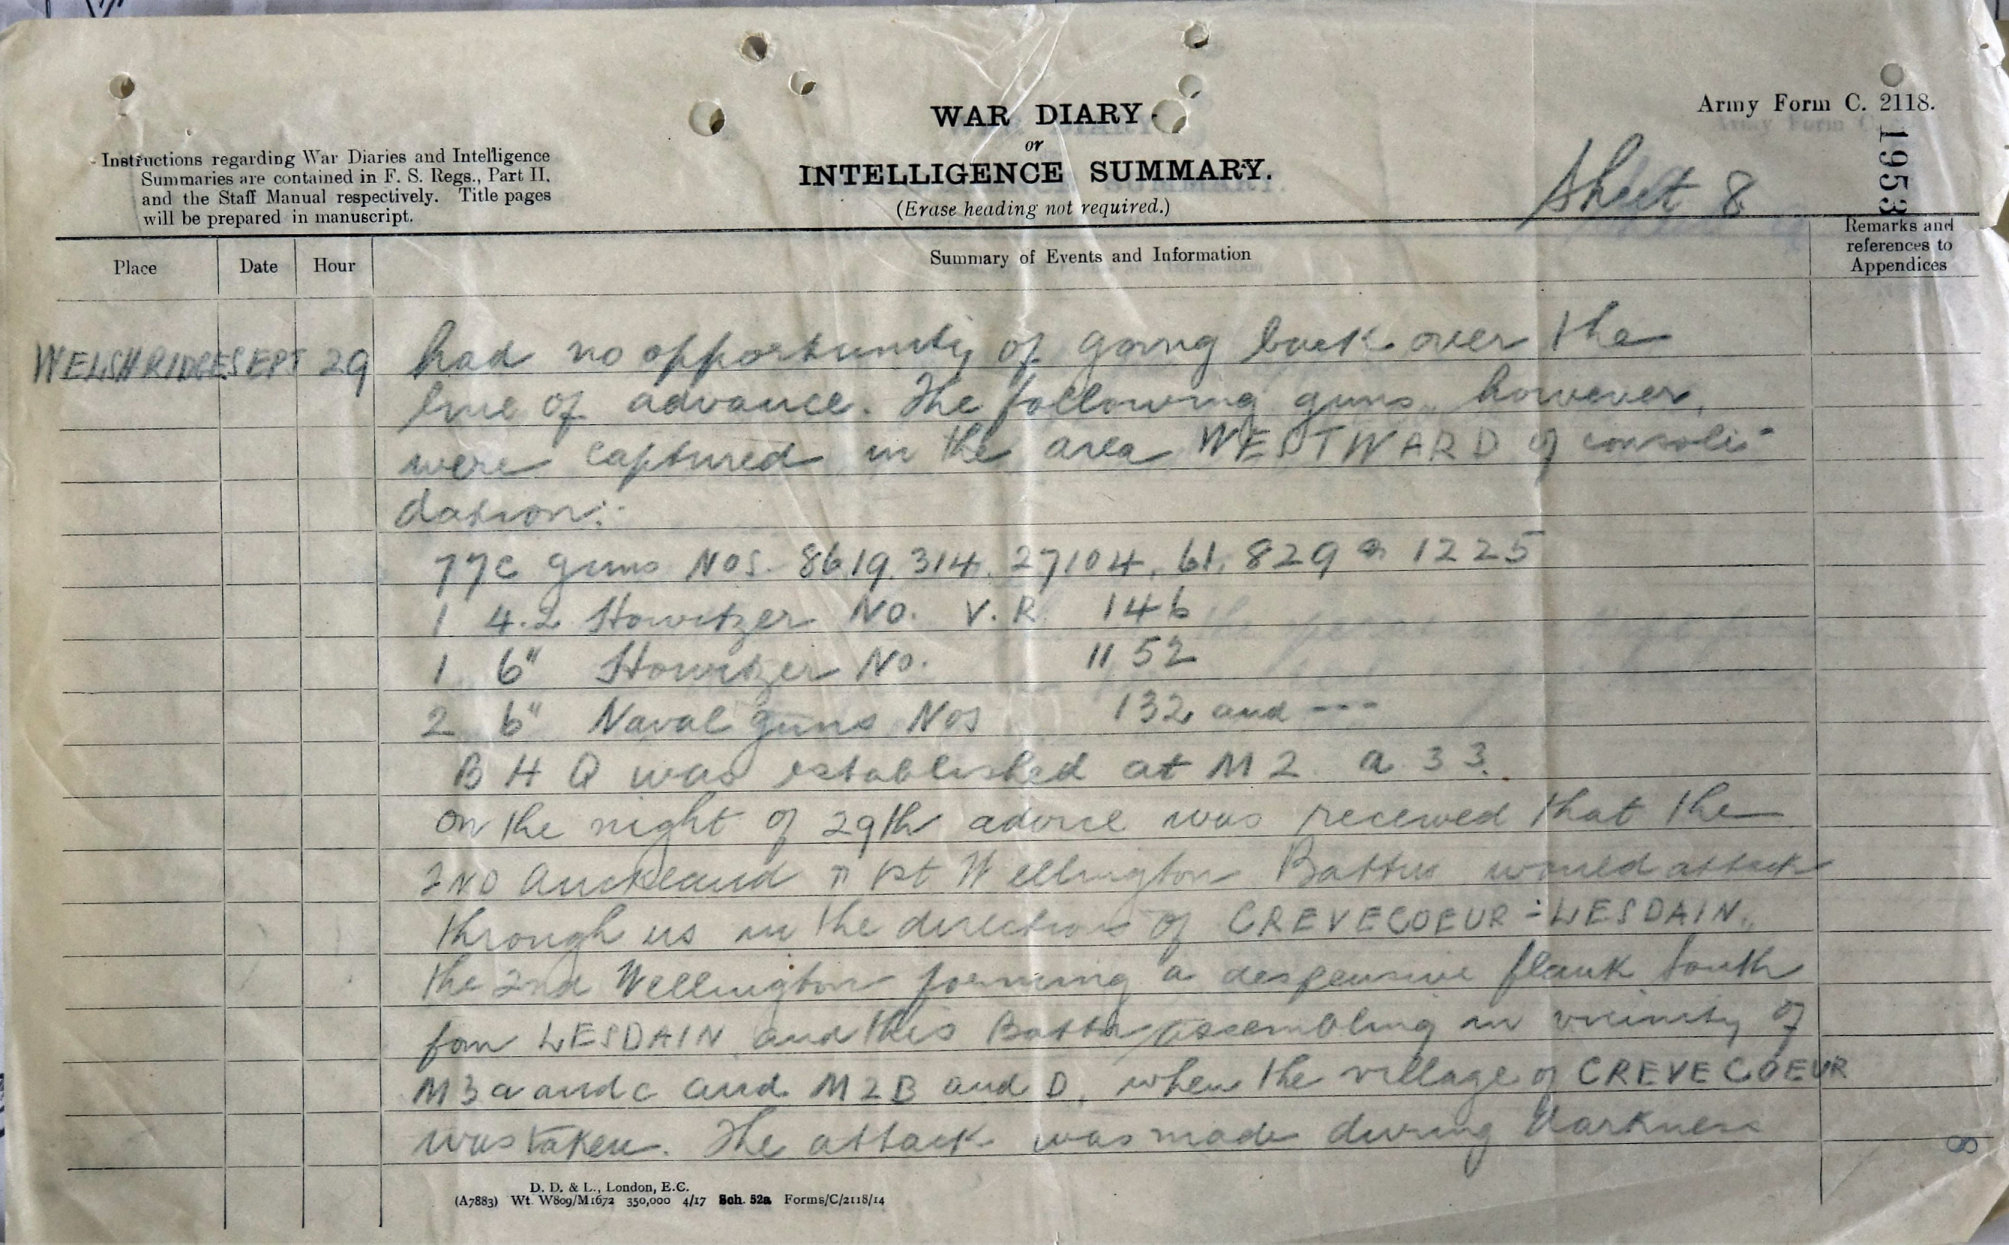 WAR DIARY
or
INTELLIGENCE SUMMARY.
(Erase heading not required.)
Army Form C. 2118.
1953
Sheet 8
Instructions regarding War Diaries and Intelligence
Summaries are contained in F. S. Regs., Part II.
and the Staff Manual respectively. Title pages
will be prepared in manuscript.
Place Date Hour Summary of Events and Information Remarks and
references to
Appendices
WELSH RIDGE SEPT 29 had no opportunity of going back over the
line of advance. The following guns, however,
were captured in the area WESTWARD of consoli-
dation:-
77c guns Nos. 8619. 314. 27104. 61. 829 & 1225
1 4.2 Howitzer No. V.R. 146
1 6" Howitzer No. 1152
2 6" Naval guns Nos 132 and ---
B H Q was established at M 2 a 3 3.
On the night of 29th advice was received that the
2ND Auckland & 1st Wellington Battns would attack
through us in the direction of CREVECOEUR - LESDAIN.
the 2nd Wellington forming a despensive flank South
fom LESDAIN and this Battn assembling in vicinity of
M3a and c and M2B and D, when the village of CREVECOEUR
was taken. The attack was made during darkness
8
D. D. & L., London, E.C.
(A7883) Wt. W809/M1672 350,000 4/17 Sch. 52a Forms/C/2118/14